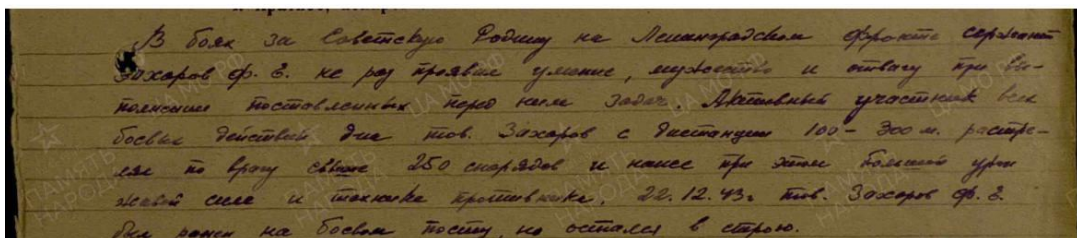 В боях за Советскую Родину на Ленинградском фронте сержант
Захаров Ф. Е. не раз проявил умение, мужество и отвагу при вы-
полнении поставленных перед ним задач. Активный участник всех
боевых действий див тов. Захаров с дистанции 100-300 м. расстре-
лял по врагу свыше 250 снарядов и нанес при этом большой урон
живой силе и технике противника. 22.12.43г тов. Захаров Ф. Е.
был ранен на боевом посту, но остался в строю.
ПАМЯТЬ НАРОДА
ЦА МО РФ